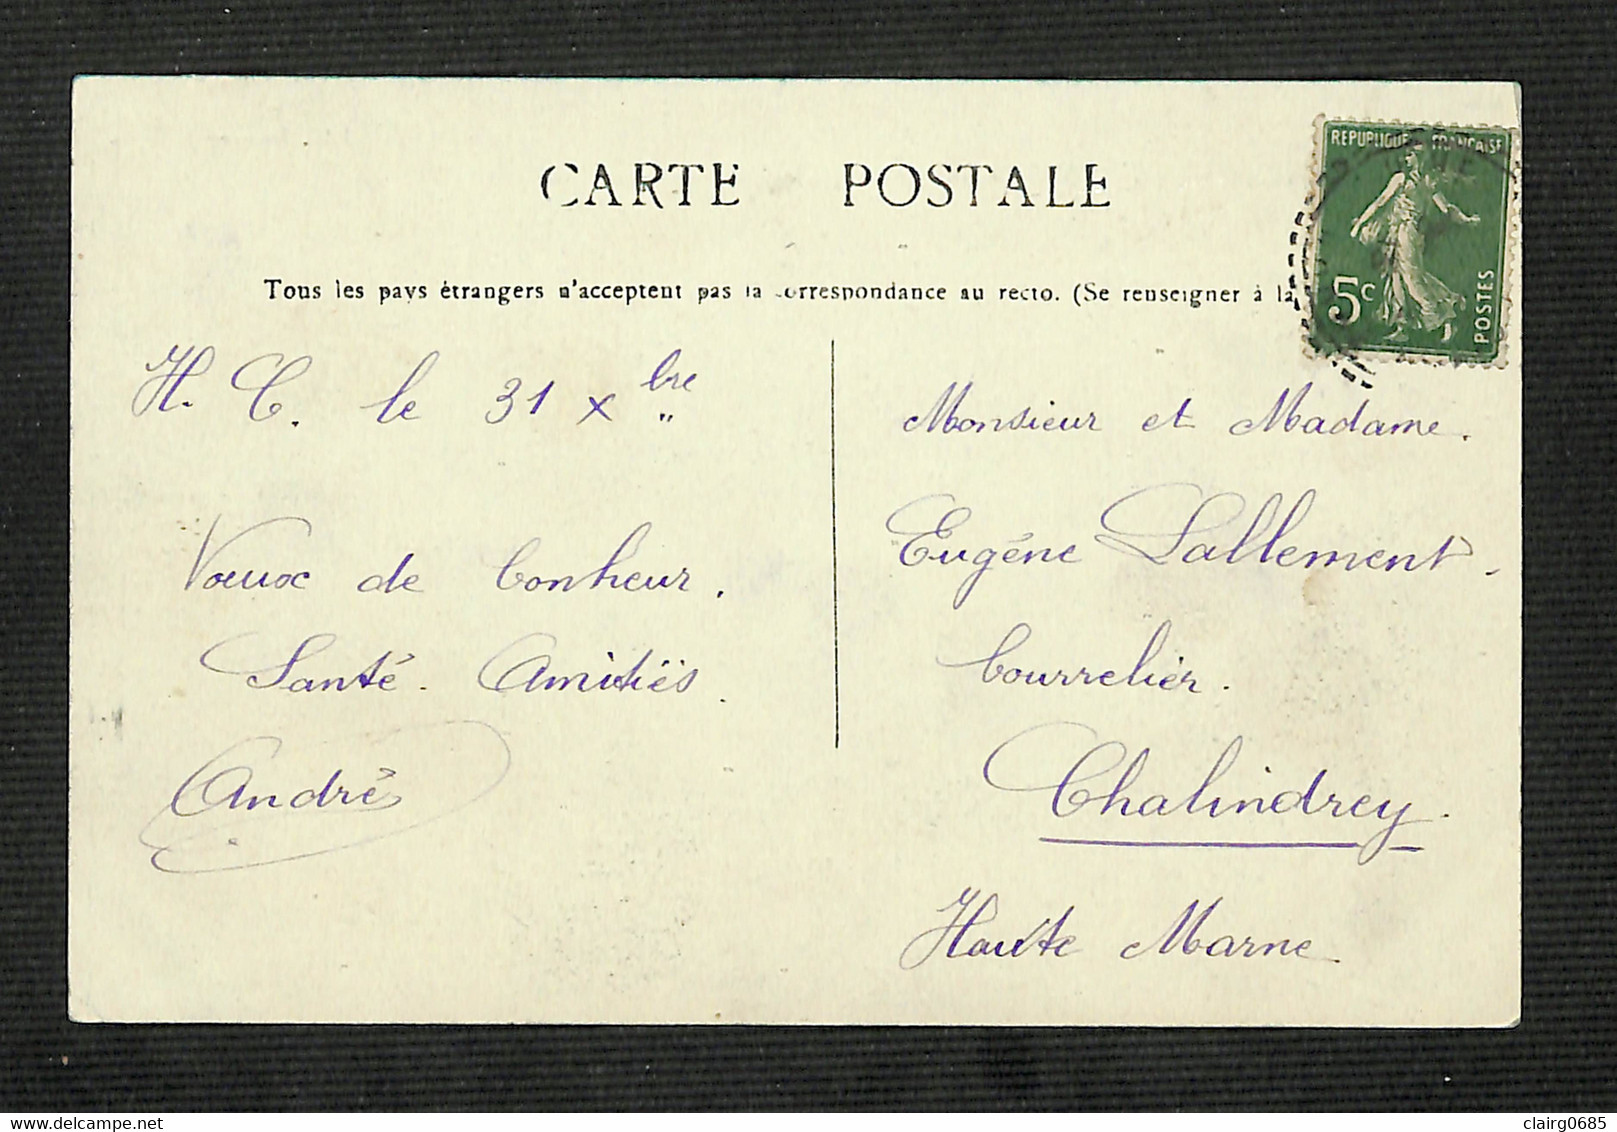 CARTE POSTALE
Tous les pays étrangers n'acceptent pas la correspondance au recto. (Se renseigner à la
REPUBLIQUE FRANÇAISE
5c
POSTES
H. C. le 31 Xbre
Voeux de bonheur.
Santé. Amitiés.
André
Monsieur et Madame.
Eugéne Lallement.
bourrelier.
Chalindrey.
Haute Marne
clairg0685